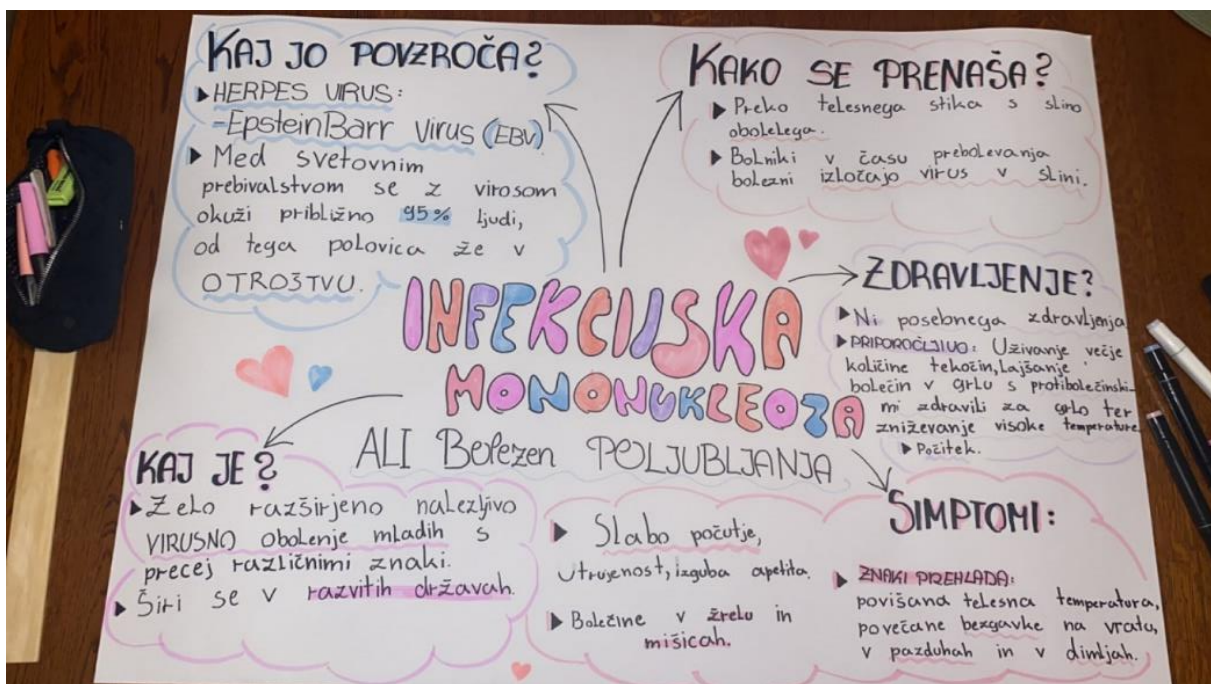 KAJ JO POVZROČA?
▸HERPES VIRUS:
-EpsteinBarr Virus (EBV)
▸ Med svetovnim
prebivalstvom se z virosom
okuži približno 95% ljudi,
od tega polovica že v
OTROŠTVU.
KAKO SE PRENAŠA?
▸ Preko telesnega stika s slino
obolelega.
▸ Bolniki v času prebolevanja
bolezni izločajo virus v slini.
ZDRAVLJENJE?
▸Ni posebnega zdravljenja
▸PRIPOROČLJIVO: Uživanje večje
količine tekočin, Lajšanje
bolečin v grlu s protibolečinski-
mi zdravili za grlo ter
zniževanje visoke temperature.
▸ Počitek.
INFEKCIJSKA
MONONUKLEOZA
ALI Bolezen POLJUBLJANJA
KAJ JE?
▸ Zelo razširjeno nalezljivo
VIRUSNO obolenje mladih s
precej različnimi znaki.
▸ Širi se v razvitih državah.
SIMPTOMI:
▸ Slabo počutje,
Utrujenost, izguba apetita.
▸ Bolečine v žrelu in
mišicah.
▸ ZNAKI PREHLADA:
povišana telesna temperatura,
povečane bezgavke na vratu,
v pazduhah in v dimljah.